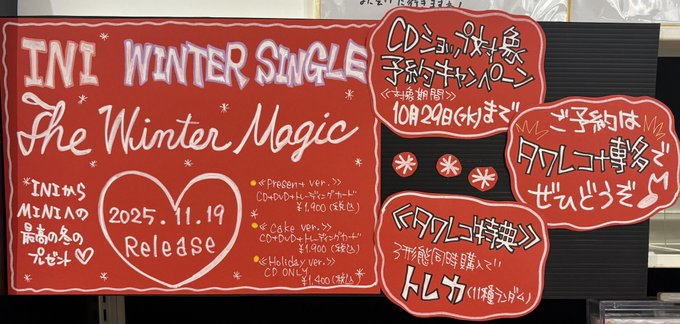 INI WINTER SINGLE
The Winter Magic
INIから
MINIへの
最高の冬の
プレゼント♡
2025.11.19
Release
≪Present ver.≫
CD+DVD+トレーディングカード
¥1,900(税込)
≪Cake ver.≫
CD+DVD+トレーディングカード
¥1,900(税込)
≪Holiday ver.≫
CD ONLY
¥1,400(税込)
CDショップ対象
予約キャンペーン
≪対象期間≫
10月29日(水)まで
ご予約は
タワレコ+博多で
ぜひどうぞ♪
≪タワレコ特典≫
3形態同時購入で
トレカ(11種ランダム)